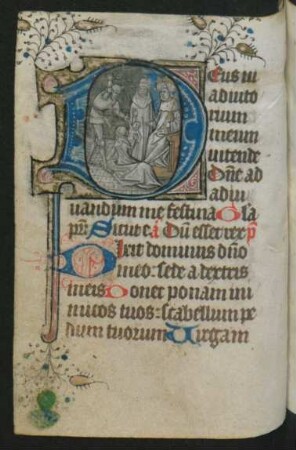 Deus in
adiuto
rium
meum
intende
Dñe ad
adiu
uandum me festina Gla
pri Sicut e a Dũ esset rex p
Dixit dominus dño
meo: sede a dextris
meis Donec ponam ini
micos tuos: scabellum pe
dum tuorum Uirgam